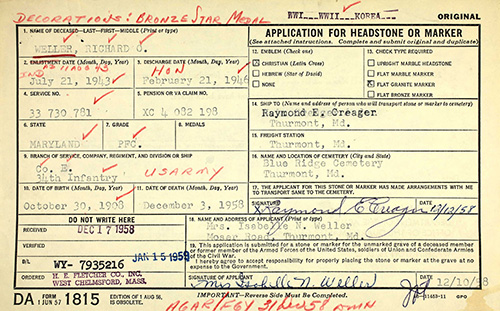 DECORATIONS: BRONZE STAR MEDAL
WWI WWII KOREA
ORIGINAL
1. NAME OF DECEASED—LAST—FIRST—MIDDLE (Print or type)
WELLER, RICHARD O.
APPLICATION FOR HEADSTONE OR MARKER
(See attached instructions. Complete and submit original and duplicate)
2. ENLISTMENT DATE (Month, Day, Year)
July 21, 1943
IND
3. DISCHARGE DATE (Month, Day, Year)
HON
February 21, 1946
12. EMBLEM (Check one)
CHRISTIAN (Latin Cross)
HEBREW (Star of David)
NONE
13. CHECK TYPE REQUIRED
UPRIGHT MARBLE HEADSTONE
FLAT MARBLE MARKER
FLAT GRANITE MARKER
FLAT BRONZE MARKER
4. SERVICE NO.
33 730 781
5. PENSION OR VA CLAIM NO.
XC 4 082 198
14. SHIP TO (Name and address of person who will transport stone or marker to cemetery)
Raymond E. Creager
Thurmont, Md.
6. STATE
MARYLAND
7. GRADE
PFC.
8. MEDALS
15. FREIGHT STATION
Thurmont, Md.
9. BRANCH OF SERVICE, COMPANY, REGIMENT, AND DIVISION OR SHIP
Co. E.
Infantry
US ARMY
16. NAME AND LOCATION OF CEMETERY (City and State)
Blue Ridge Cemetery
Thurmont, Md.
10. DATE OF BIRTH (Month, Day, Year)
October 30, 1908
11. DATE OF DEATH (Month, Day, Year)
December 3, 1958
17. THE APPLICANT FOR THIS STONE OR MARKER HAS MADE ARRANGEMENTS WITH ME TO TRANSPORT SAME TO THE CEMETERY.
SIGNATURE
Raymond E Creager 12/13/58
DO NOT WRITE HERE
RECEIVED
DEC 17 1958
VERIFIED
JAN 15 1959
B/L
WY- 7935216
ORDERED
H. E. FLETCHER CO., INC.
WEST CHELMSFORD, MASS.
18. NAME AND ADDRESS OF APPLICANT (Print or type)
Mrs. Isabelle N. Weller
Moser Road, Thurmont, Md.
19. This application is submitted for a stone or marker for the unmarked grave of a deceased member or former member of the Armed Forces of the United States, soldiers of Union and Confederate Armies of the Civil War.
I hereby agree to accept responsibility for properly placing the stone or marker at the grave at no expense to the Government.
SIGNATURE OF APPLICANT
Mrs Isabelle N. Weller
12/10/58
DA FORM 1815
1 JUN 57
EDITION OF 1 AUG 56, IS OBSOLETE.
IMPORTANT—Reverse Side Must Be Completed.
GPO